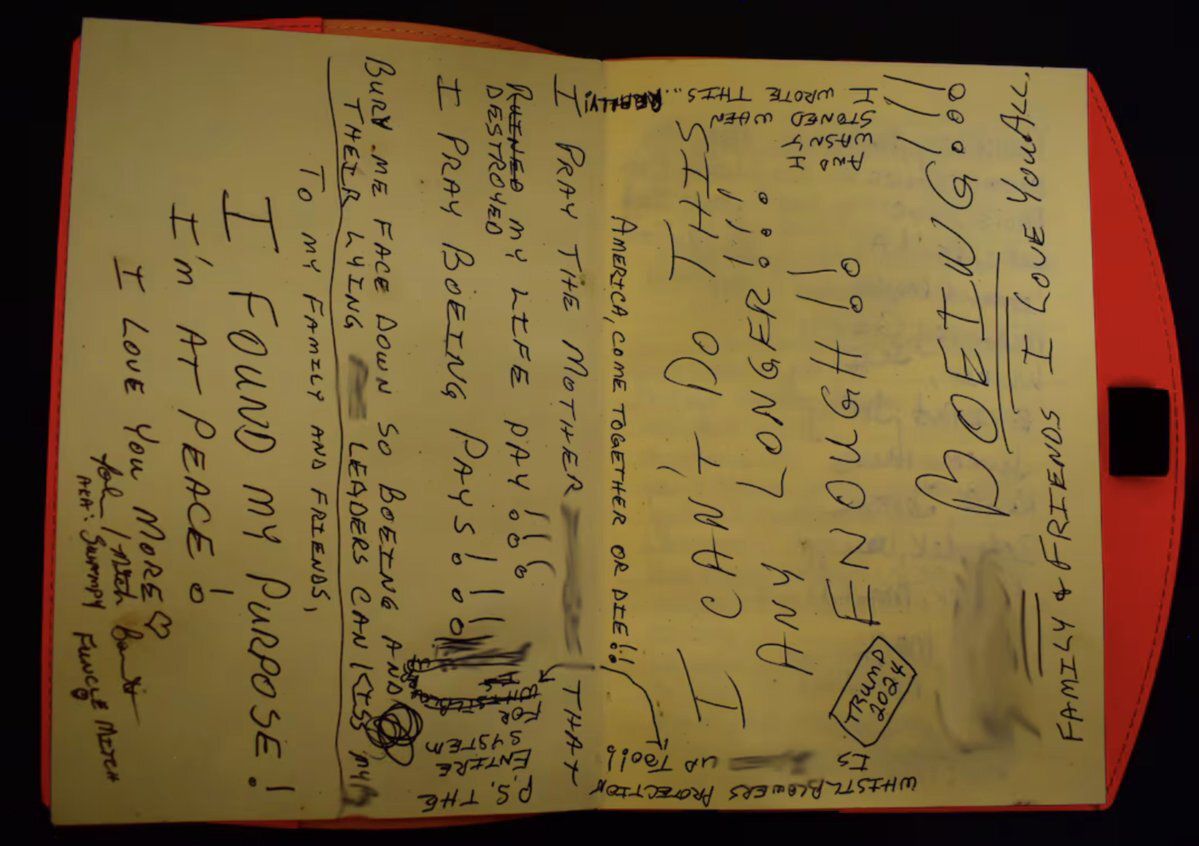 FAMILY & FRIENDS I LOVE YOU ALL.
BOEING!!!
ENOUGH!!
ANY LONGER!!!
I CAN'T DO THIS
TRUMP
2024
AND I
WASN'T
STONED WHEN
I WROTE THIS...
REALLY!
WHISTLBLOWERS PROTECTION
IS
UP TOO!!
AMERICA, COME TOGETHER OR DIE!!
I PRAY THE MOTHER THAT
RUINED MY LIFE PAY!!!
DESTROYED
I PRAY BOEING PAYS!!!
P.S. THE
ENTIRE
SYSTEM
FOR
BURY ME FACE DOWN SO BOEING AND
THEIR LYING LEADERS CAN KISS MY
TO MY FAMILY AND FRIENDS,
I FOUND MY PURPOSE!
I'M AT PEACE!
I LOVE YOU MORE♡
AKA: SWAMPY FUNCLE MITCH